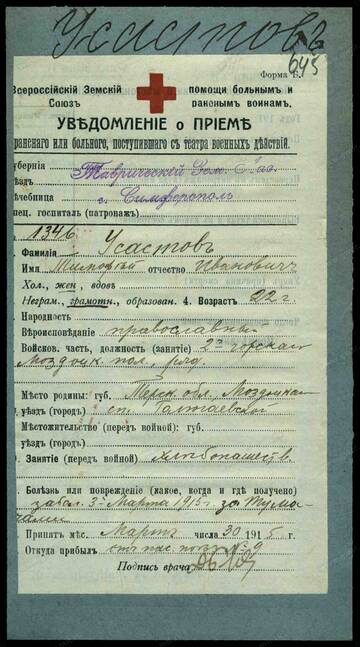 Усастовъ
645
Форма Б.
Всероссійскій Земскій
Союзъ
помощи больнымъ и
раненымъ воинамъ.
УВѢДОМЛЕНІЕ о ПРІЕМѢ
раненаго или больного, поступившаго съ театра военныхъ дѣйствій.
губернія Таврическій Зем.
ѣздъ
лечебница г. Симферополь
пец. госпиталь (патронажъ)
1346
Фамилія Усастовъ
Имя Тимофей отчество Ивановичъ
Хол., жен., вдовъ
Неграм., грамотн., образован. 4. Возрастъ 22 г.
Народность
Вѣроисповѣданіе православный
Войсков. часть, должность (занятіе) 2й Горскій
Моздок. пол., ряд.
Мѣсто родины: губ. Терск. обл., Моздокск
уѣздъ (городъ) ст. Галюгаевской
Мѣстожительство (передъ войной): губ.
уѣздъ (городъ)
Занятіе (передъ войной) хлѣбопашеств.
Болѣзнь или поврежденіи (какое, когда и гдѣ получено)
забол. 3 Марта 1915 г.
Принятъ мѣс. Мартъ числа 30 1915 г.
Откуда прибылъ поѣзд № 9
Подпись врача